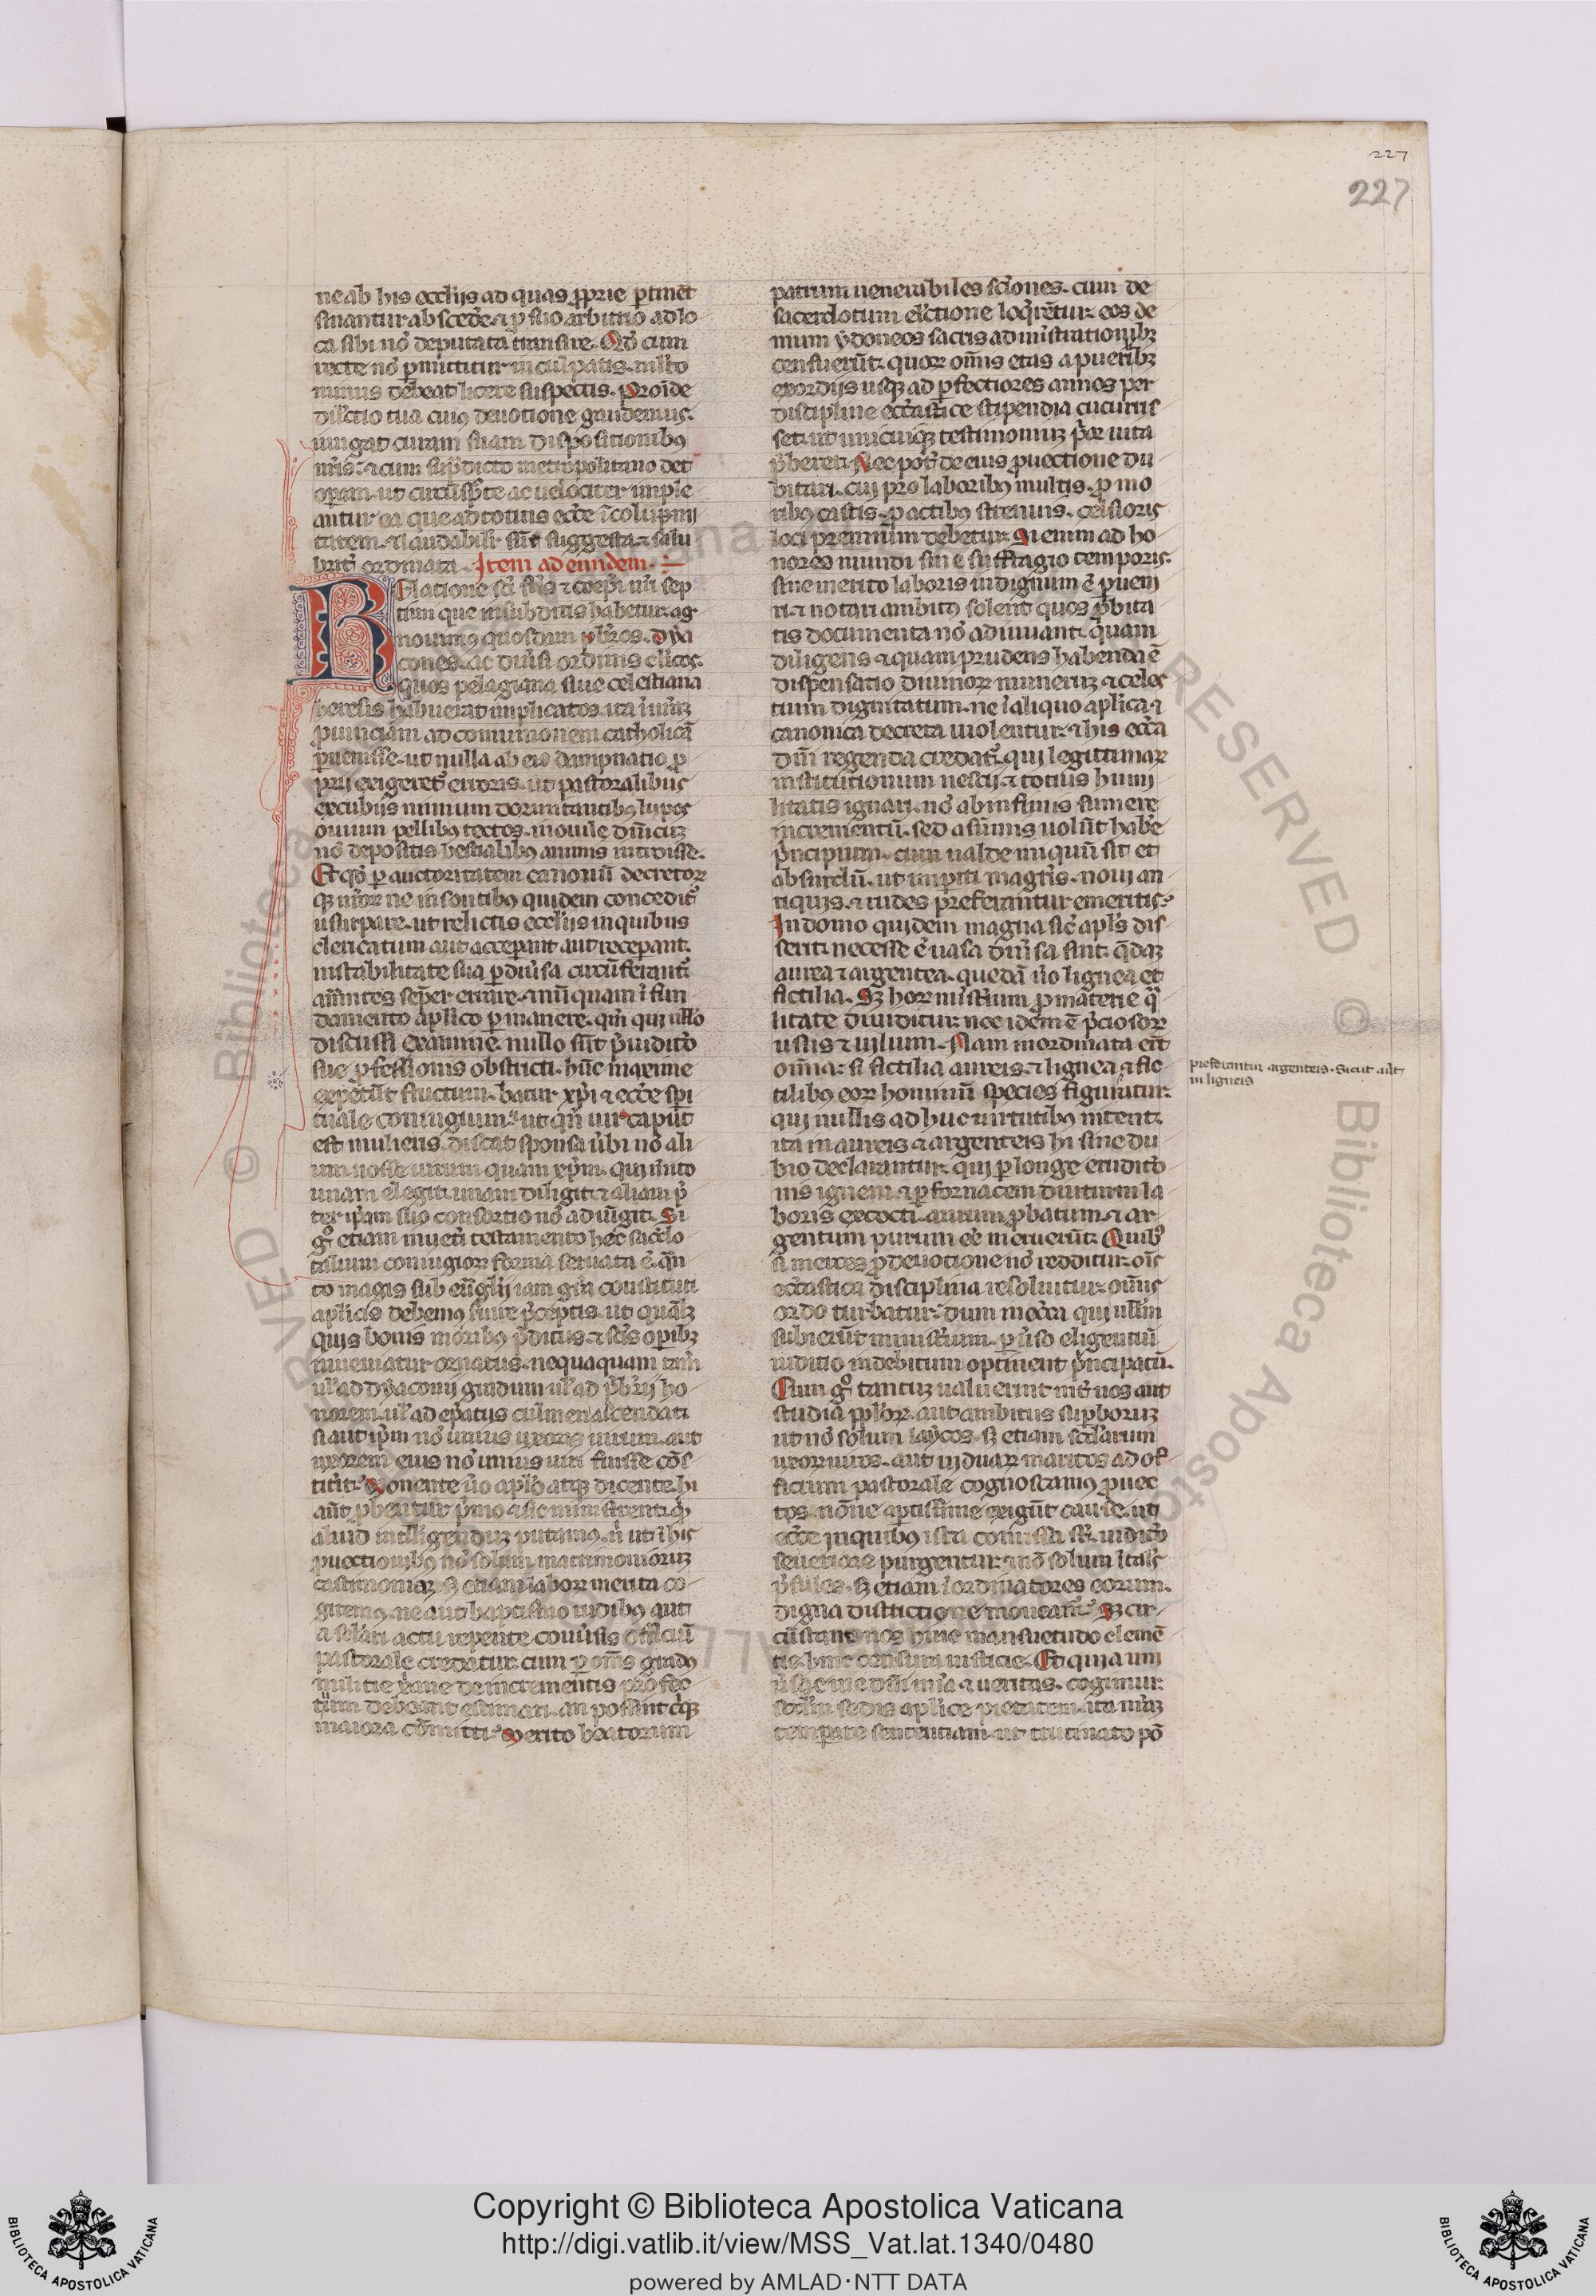 227
227
ne ab his ecclijs ad quas ꝓprie ꝑtinēt
sinantur abscede᷑ ⁊ ꝓ suo arbitrio ad lo
ca sibi nō deputata transire. Qd̕ cum
recte nō ꝑmittitur inculpatis. ml̕to
minus debeat licere suspectis. Proīde
dilc̄tio tua cuiꝰ deuotione gaudemus.
iungat curam suam dispositionibꝰ
nr̄is: ⁊ cum sup̄dicto metropolitano det
oꝑam. ut circūsp̄cte ac uelociter imple
antur ea que ad totius ecc̄e ī columpni
tatem. ⁊ laudabilit̕ sūt suggesta ⁊ salu
brit̕ ordinata. Item ad eundem.
RElatione sc̄i fr̄is ⁊ coep̄i nr̄i sep
tim que insubditis habetur. ag
nouimꝰ quosdam p̄br̄os. dya
cones. ac diu̕si ordinis cl̕icos.
quos pelagiana siue celestiana
heresis habuerat implicatos. ita ī
ꝓuinciam ad comunionem catholicā
ꝑuenisse. ut nulla ab eis dampnatio ꝓ
prij exigeret᷑ erroris. ut pastoralibus
excubijs nimium dormitantibꝰ lupos
ouium pellibꝰ tectos. in ouile dn̄icuꝫ
nō depositis bestialibꝰ animis introisse.
Et qd̕ ꝑ auctoritatem canonū decretoꝝ
qꝫ nr̄oꝝ ne insontibꝰ quidem concedit᷑
usurpare. ut relictis ecclijs in quibus
clericatum aut acceꝑant aut receꝑant.
instabilitate sua ꝑ diu̕sa circūferant᷑
amantes semꝑ errare. ⁊ nūquam ī fun
damento apl̕ico ꝑmanere. qm̄ qui nullo
discussi examine. nullo sūt p̄iudicio
sue ꝓfessionis obstricti. hūc maxime
expetūt fructum.
tuale coniugium. ut qn̄ uir caput
est mulieris. discat sponsa ūbi nō ali
um nosse uirum quam xp̄m. qui m̕ito
unam elegit. unam diligit. ⁊ aliam p̄
ter ip̄am suo consortio nō adiūgit. Si
gͦ etiam in ueti̕ testamento hec sac̕do
talium coniugioꝝ forma seruata ē. qn̄
to magis sub euglij iam gr̄a constituti
apl̕icis debemꝰ seruire p̄ceptis. ut quāl̕ꝫ
quis bonis moribꝰ p̄ditus. ⁊ sc̄is oꝑibꝫ
inueniatur ornatus. nequaquam tam̄
ul̕ ad dyaconij gradum ul̕ ad p̄br̄ij ho
norem. ul̕ ad ep̄atus culmen ascendat.
si aut ip̄m nō unius uxoris uirum. aut
uxorem eius nō unius uiri fuisse cōs
titit̕. Monente ūo apl̕o atqꝫ dicente. hi
aūt ꝓbentur p̄mo ⁊ sic ministrent.
aliud intelligenduꝫ putamꝰ. n̄ ut ī his
ꝓuectionibꝰ nō solum matrimonioruꝫ
castimoniaꝝ. sꝫ etiam laboꝝ merita co
gitemꝰ. ne aut baptismo rudibꝰ aut
a sec̄lari actu repente conu̕sis officiū
pastorale credatur. cum ꝑ om̄s gradꝰ
militie xp̄iane de incrementis ꝓfec
tuum debeant estimari. an possint
maiora cōmitti. Merito beatorum
patrum uenerabiles sc̄iones. cum de
sacerdotum elc̄tione loqrētur. eos de
mum ydoneos sacris administrationibꝫ
censuerūt. quoꝝ om̄is etas a pueribꝫ
exordijs usqꝫ ad ꝑfectiores annos per
discipline ecc̄astice stipendia cucuris
set. ut unicuiqꝫ testimoniuꝫ p̄or uita
p̄beret. Nec pōt de eius ꝓuectione du
bitari. cui pro laboribꝰ multis. ꝓ mo
ribꝰ castis. ꝓ actibꝰ strenuis. celsioris
loci premium debetur. Si enim ad ho
nores mundi sine suffragio temporis.
sine merito laboris indignum ē ꝑueni
ri. ⁊ notari ambitꝰ solent quos ꝓbita
tis documenta nō adiuuant. quam
diligens ⁊ quam prudens habenda ē
dispensatio diuinoꝝ muneruꝫ ⁊ celes
tium dignitatum. ne ī aliquo apl̕ica ⁊
canonica decreta uiolentur. ⁊ his ecc̄a
dn̄i regenda credat᷑. qui legittimaꝝ
institutionum nescij. ⁊ totius humi
litatis ignari. nō ab infimis sumere
incrementū. sed a sūmis uolūt habe᷑
p̄ncipium. cum ualde iniquū sit et
absurdū. ut imꝑiti magr̄is. noui an
tiquis. ⁊ rudes preferantur emeritis.
In domo quidem magna sic̄ apl̕s dis
serit. necesse ē uasa diu̕sa sint. q̄daꝫ
aurea ⁊ argentea. quedā ūo lignea et
fictilia. Sꝫ hoꝝ mīstium ꝓ materie q̄
litate diuiditur. nec idem ē p̄ciosoꝝ
usus ⁊ uilium. Nam inordinata erūt
om̄ia: si fictilia aureis. ⁊ lignea ⁊ fic
tilibꝰ eoꝝ hominū species figuratur.
qui nullis adhuc uirtutibꝰ nitent.
ita in aureis ⁊ argenteis hi sine du
bio declarantur. qui ꝑ longe eruditō
nis ignem. ⁊ ꝑ fornacem diuturni la
boris excocti. aurum ꝓbatum. ⁊ ar
gentum purum ee᷑ meruerūt. Quibꝰ
si merces ꝓ deuotione nō redditur. oīs
ecc̄astica disciplina resoluitur. om̄is
ordo turbatur. dum in ecc̄a qui ullm̄
subierūt ministium. ꝑ u̕so eligentiū
iuditio indebitum optinent p̄ncipatū.
Cum gͦ tantuꝫ ualuerint int̕ uos aut
studia ppl̕oꝝ. aut ambitus suꝑboruꝫ
ut nō solum laycos. sꝫ etiam sec̄darum
uxoꝝ uiros. aut uiduaꝝ maritos ad of
ficium pastorale cognoscamꝰ ꝓuec
tos. nōne aꝑtissime exigūt cause. ut
ecc̄e in quibus ista comissa sūt. iuditō
seueriore purgentur. ⁊ nō solum
p̄sules. sꝫ etiam ī ordinatores eorum.
digna districtione moueant᷑. Sꝫ cir
cūstant nos hinc mansuetudo clemē
tie. hinc censura iusticie. Et quia uni
u̕se uie dn̄i mīa ⁊ ueritas. cogimur.
scd̕m sedis apl̕ice pietatem. ita
temꝑare sententiam. ut trutinato pō
preferantur argenteis. Sicut aūt
in ligneis
Copyright © Biblioteca Apostolica Vaticana
http://digi.vatlib.it/view/MSS_Vat.lat.1340/0480
powered by AMLAD·NTT DATA
BIBLIOTECA APOSTOLICA VATICANA
BIBLIOTECA APOSTOLICA VATICANA